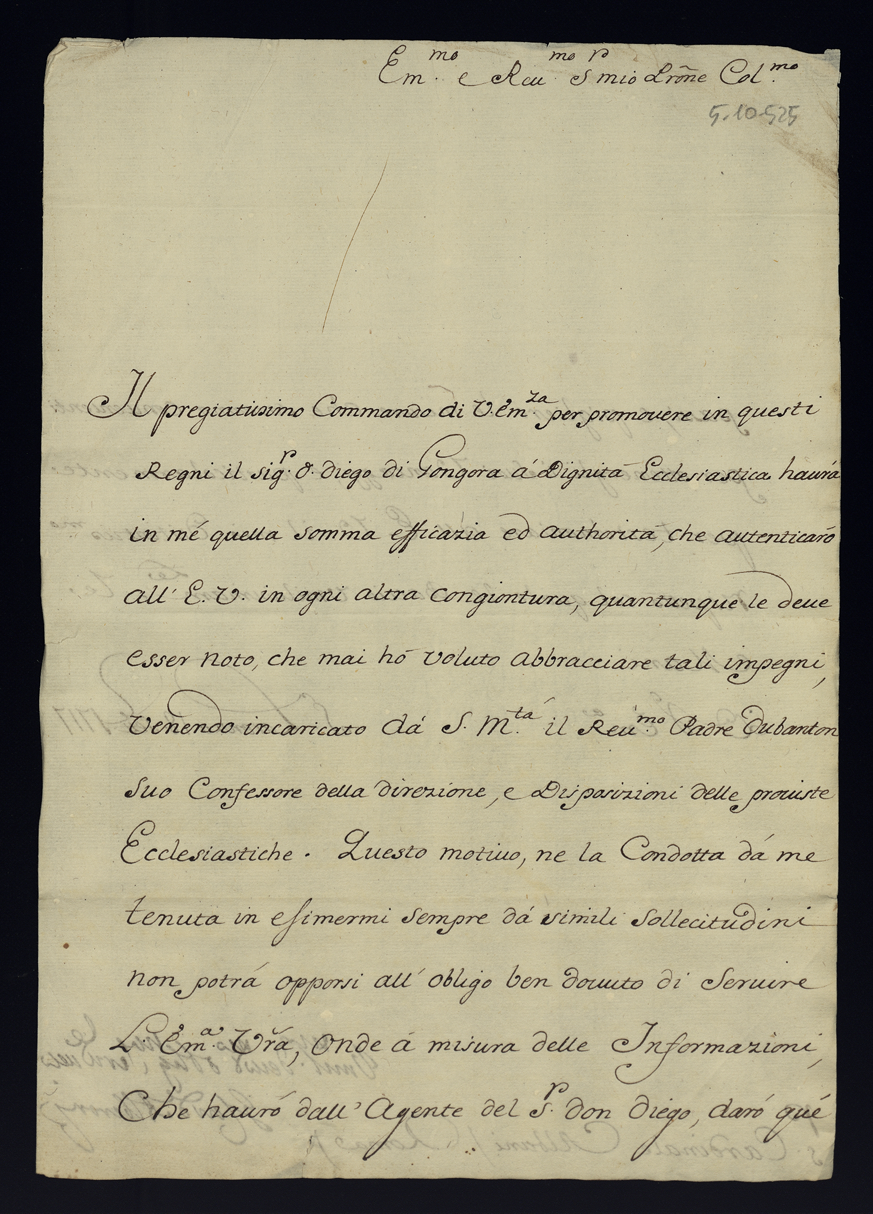 Em.mo e Reu.mo S.r mio Prōne Col.mo
5-10-525
Il pregiatissimo Commando di V. Em.za per promouere in questi
Regni il Sig.r D. Diego di Gongora á Dignitá Ecclesiastica haurá
in mé quella somma efficazia ed authoritá, che autenticaró
all' E. V. in ogni altra congiontura, quantunque le deue
esser noto, che mai hó voluto abbracciare tali impegni,
venendo incaricato dá S. M.tá il Reu.mo Padre Dubanton
suo Confessore della direzione, e Disposizioni delle prouiste
Ecclesiastiche. Questo motiuo, ne la Condotta dá me
tenuta in esimermi sempre dá simili sollecitudini
non potrá opporsi all' obligo ben douuto di Seruire
L' Em.a Vrã, Onde á misura delle Informazioni,
Che hauró dall' Agente del S.r don Diego, daró qué